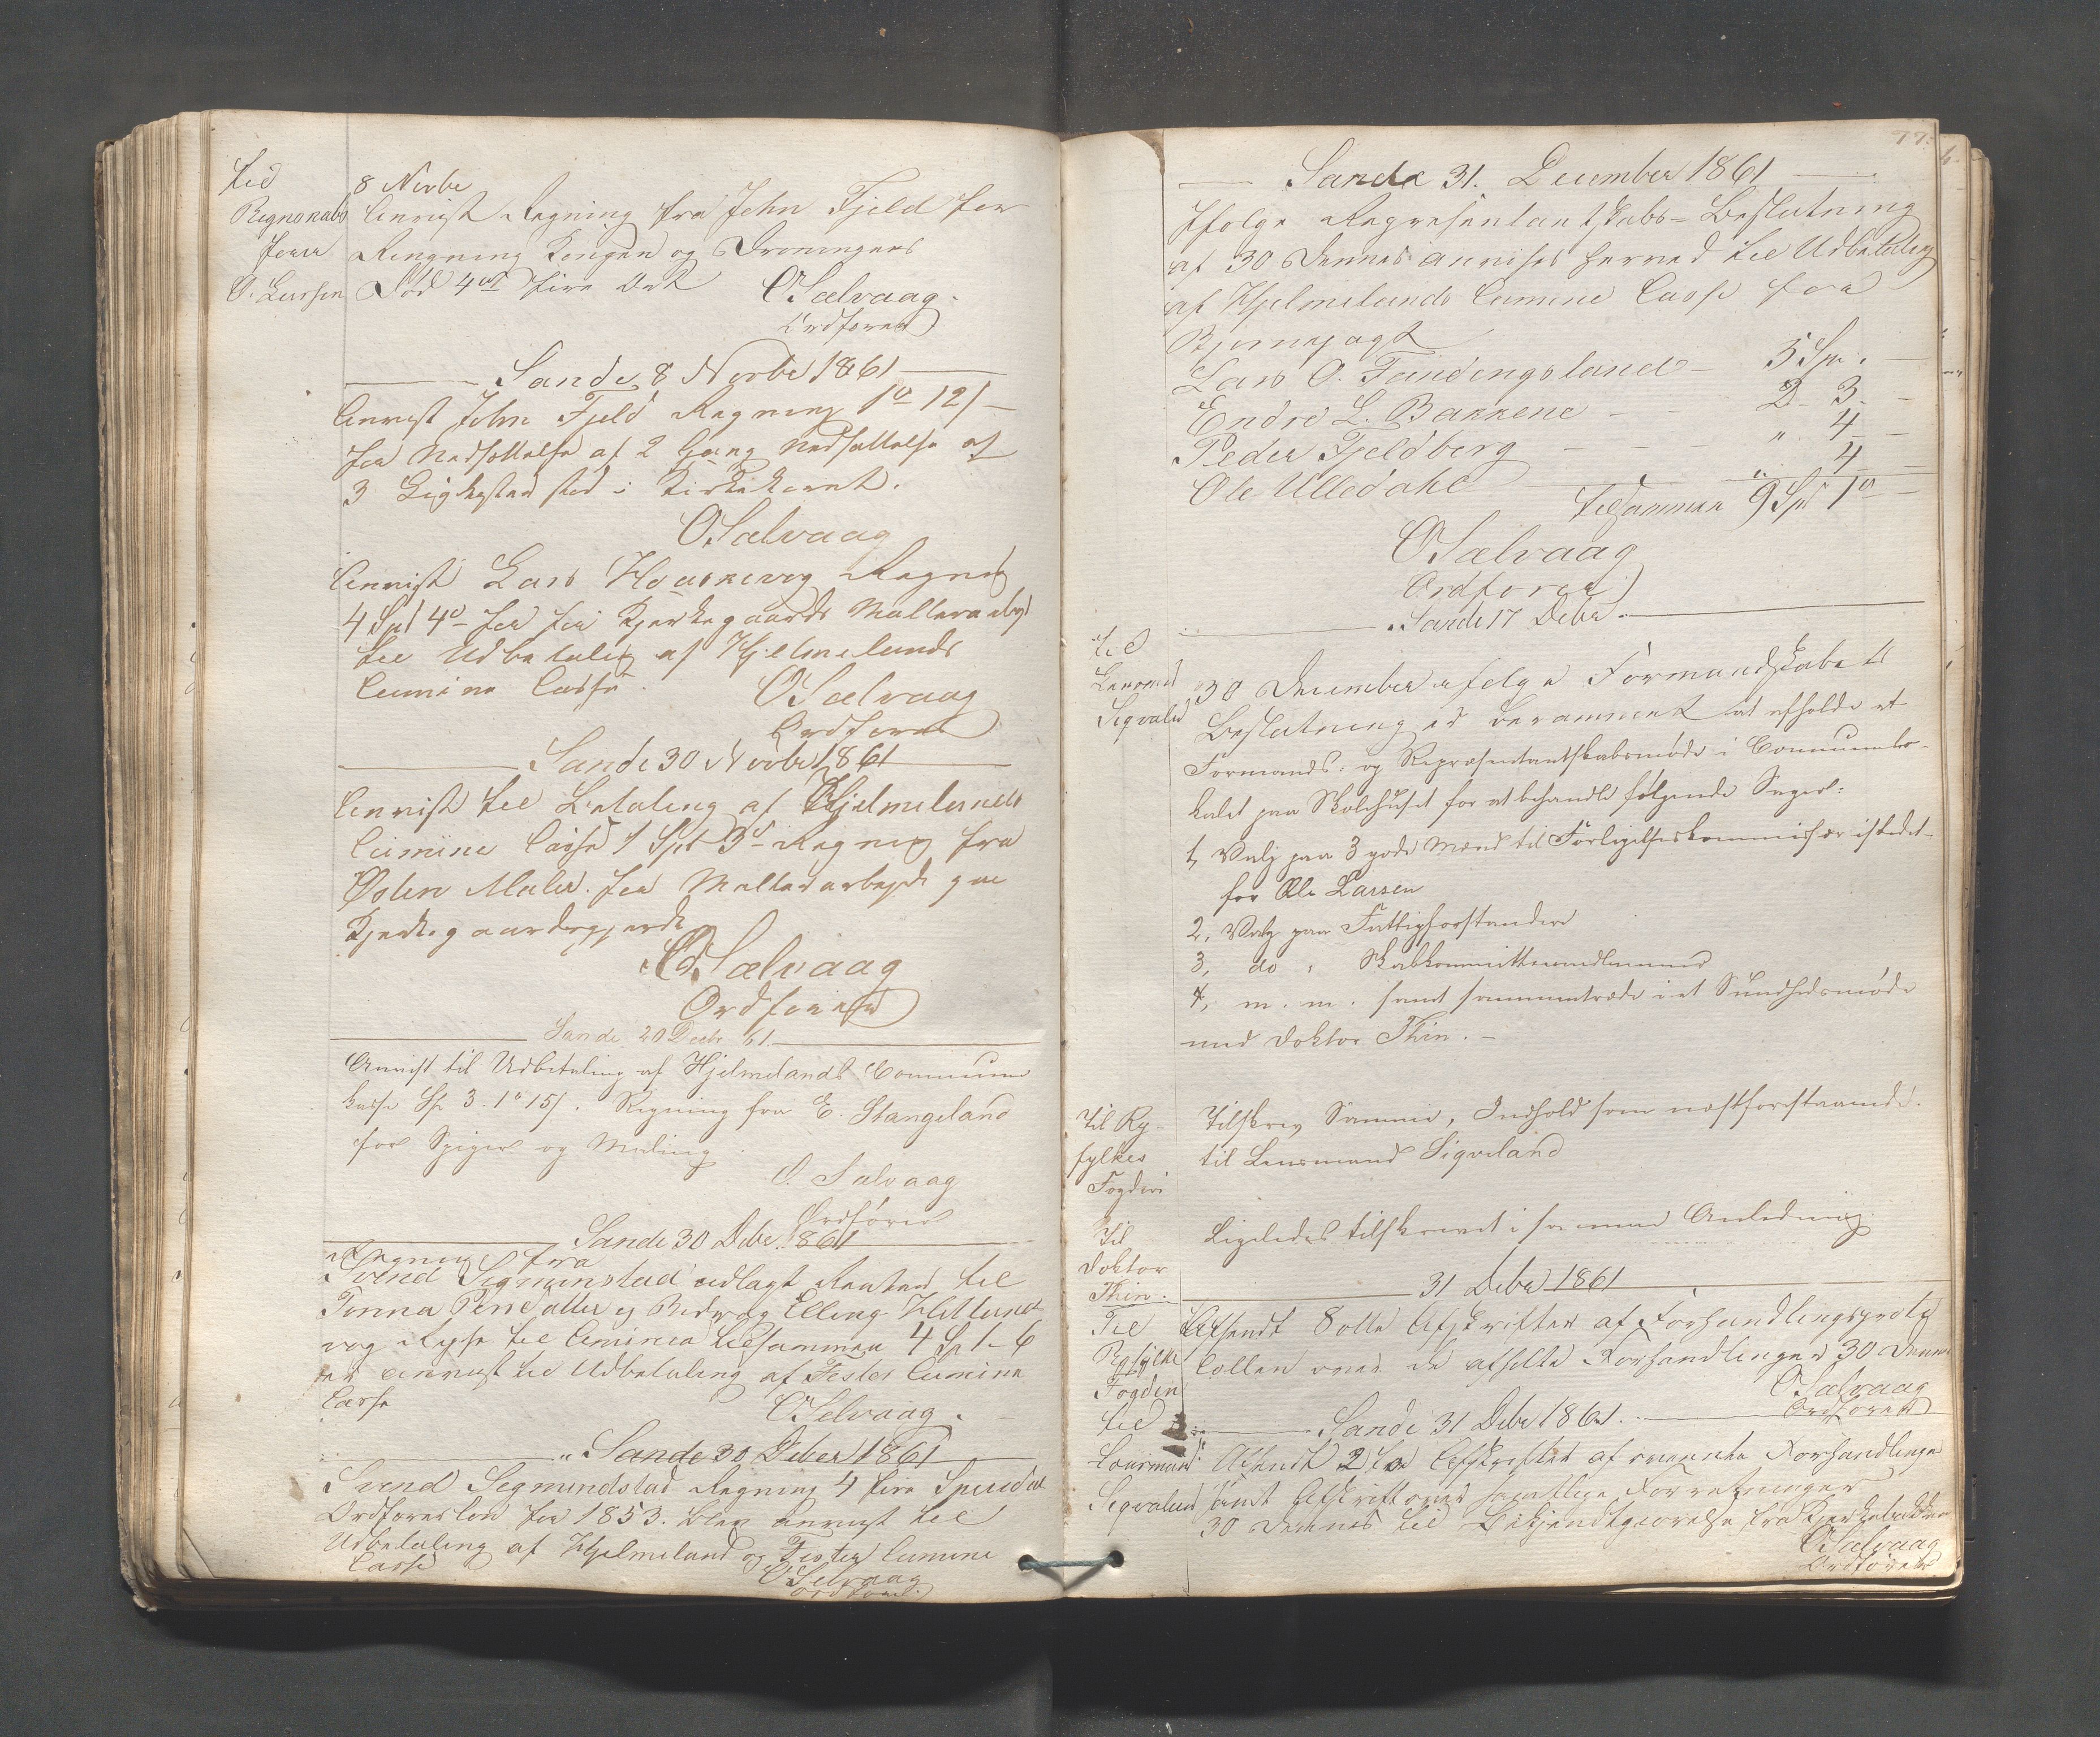 til
Regnskabs
fører
O. Larsen
8 Novbr
Anvist Regning fra John Fjeld for
Ringning Kongen og Droningens
Død 4 ort fire Ort
OSælvaag
Ordfører
Sande 8 Novbr 1861
Anvist John Fjeld Regning 1 o 12 s
for Nedsættelse af 2 Gang Nedsættelse af
3 i Kirkekoret.
OSælvaag
Anvist Lars Regning
4 Spd 4 o for Kjerkegaards
til Udbetaling af Hjelmelands
Cumine Casse
OSælvaag
Ordfører
Sande 30 Novbr 1861
Anvist til Betaling af Hjelmelands
Cumine Casse 1 Spd 3 o Regning fra
Østen Maler for Mallerarbejde paa
Kjerkegaardsgjerde
OSælvaag
Ordfører
Sande 20 Decbr 61.
Anvist til Udbetaling af Hjelmelands Commune
kasse Sp 3. 1 o 15 s. Regning fra E. Stangeland
for Spiger og Maling
O. Sælvaag
Ordfører
Sande 30 Debr 1861
Regning fra
Svend Segmunstad udlagt Renter til
Tonna og Elling
til tilsammen 4 Sp 1 - 6
er anvist til Udbetaling af Fister Cumine
Casse
OSelvaag.
Sande 30 Deber 1861
Svend Segmundstad Regning 4 fire Speciedal
Ordførerløn for 1853. blev anvist til
Udbetaling af Hjelmeland og Fister Cumine
Casse
OSelvaag
Ordfører
77.
Sande 31. December 1861
Ifølge Representantskabs-Beslutning
af 30 Dennes anvises herved til Udbetaling
af Hjelmelands Cumine Casse for
Bjørnejagt
Lars O. Tundingsland - 5 Sp. -
Endre L. Bakkene - - 2 - 3 -
Peder Fjeldberg - - " 4 -
Ole Ulledahl " 4 -
tilsammen 9 Spd 1 o -
OSælvaag
Ordfører
Sande 17 Debr.
til
Lensmd
Sigvaland
30 December ifølge Formandskabets
Beslutning er berammet at afholde et
Formands- og Repræsentantskabsmøde i Communelo-
kalet paa Skolehuset for at behandle følgende Sager:
1, Valg paa 3 gode Mænd til Forligelseskommissær istedet-
for Ole Larsen
2, Valg paa Fattigforstandere
3, do " Skolekommitteemedlemmer
4, m. m. samt sammentræde i et Sundhedsmøde
med Doktor Thin. -
Til Ry-
fylkes
Fogderi
Tilskrev Samme, Indhold som næstforstaaende.
til Lensmand Sigveland
Til
Doktor
Thin.
Ligeledes tilskrevet i samme Anledning.
31 Debr 1861
Til
Ryfylke
Fogderi
Afsendt 8 otte Afskrifter af Forhandlingsproto
collen over de afholte Forhandlinger 30 Dennes
OSælvaag
Ordfører
Sande 31 Debr 1861.
til
Lensmand
Segvaland
Afsendt 2 to Afskrifter af Forhandlinger
samt Afskrift over samtlige Forretninger
30 Dennes til Bekjendtgjørelse fra Kjerkebakken
OSælvaag
Ordfører